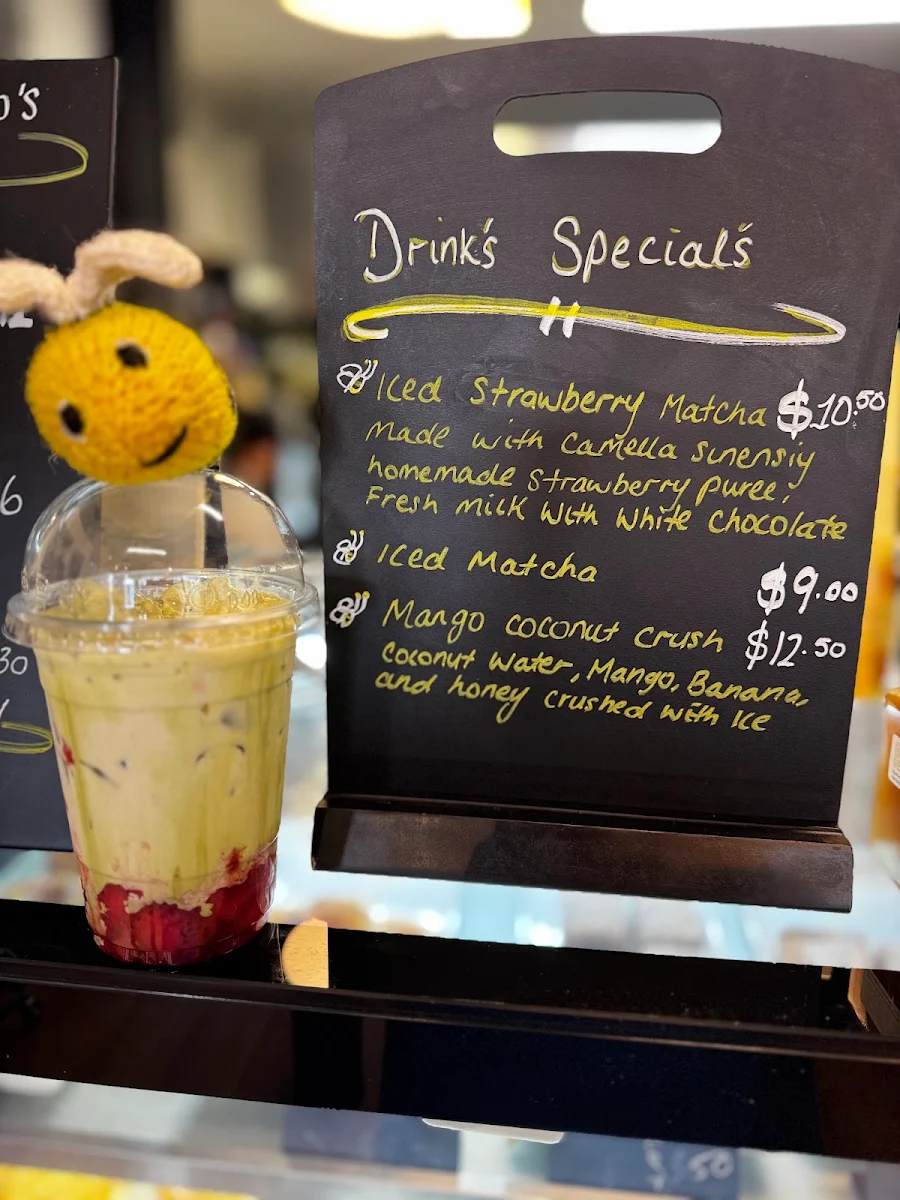 o's
6
30
Drink's Special's
Iced Strawberry Matcha $10.50
made with Camella sinensiy
homemade Strawberry puree,
Fresh milk with white chocolate
Iced Matcha
$9.00
Mango coconut crush $12.50
coconut water, Mango, Banana,
and honey crushed with Ice